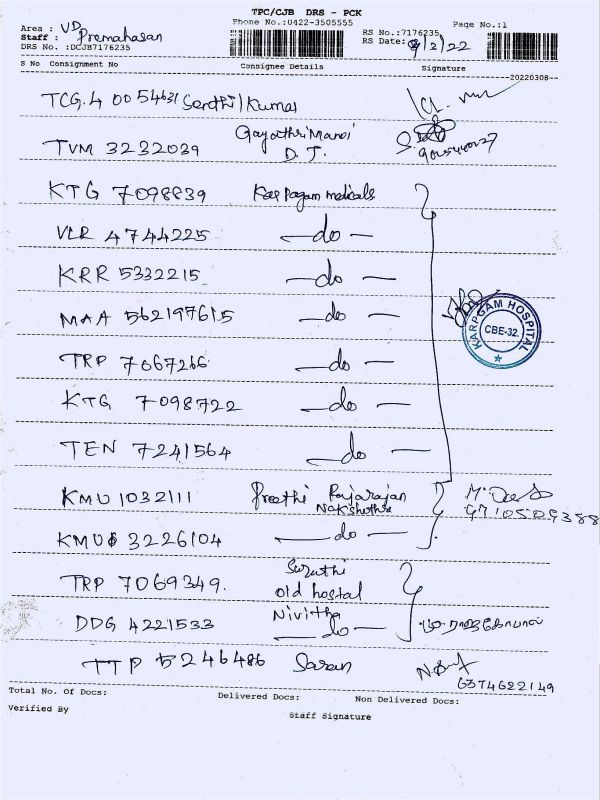 TPC/CJB DRS - PCK
Phone No.:0422-3505555
Page No.:1
Area : VD
Staff : Premahasan
DRS No. :DCJB7176235
RS No.:7176235
RS Date: 9/2/22
S No Consignment No Consignee Details Signature
20220308
TCG.4 0054631 Senthil Kumar
TVM 3232039 Gayathri Manoj
D.T.
KTG 7098839 Karpagam medicals
VLR 4744225 —do—
KRR 5332215 —do—
MAA 562197615 —do—
KARPGAM HOSPITAL
CBE-32.
TRP 7067266 —do—
KTG 7098722 —do—
TEN 7241564 —do—
KMU 1032111 Preethi Rajarajan
Nakshathra
9710509388
KMU 3226104 —do—
TRP 7069349. Suruthi
old hostal
DDG 4221533 Nivitha
—do—
TTP 5246486 Saran
6374622149
Total No. Of Docs: Delivered Docs: Non Delivered Docs:
Verified By
Staff Signature